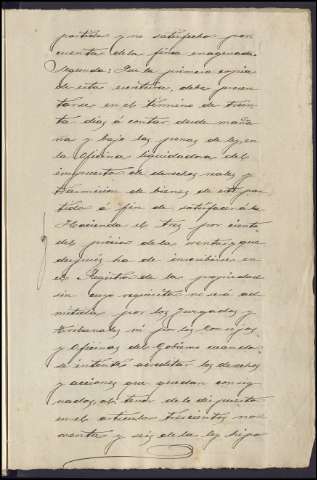 partida y no satisfecha por
cuenta de la finca enagenada
Segunda: Que la primera copia
de esta escritura, debe presen
tarse en el término de trein-
ta días á contar desde maña
na y bajo las penas de ley, en
la Oficina liquidadora del
impuesto de derechos reales y
trasmision de bienes de este par
tido á fin de satisfacer á la
Hacienda el tres por ciento
del precio de la venta, y que
después ha de inscribirse en
el Registro de la propiedad
sin cuyo requisito no será ad
mitida por los Juzgados y
tribunales ni por los Consejos
y Oficinas del Gobierno cuando
se intente acreditar los derechos
y acciones que quedan consig
nados, al tenor de lo dispuesto
en el articulo trescientos nov
venta y seis de la ley hipo